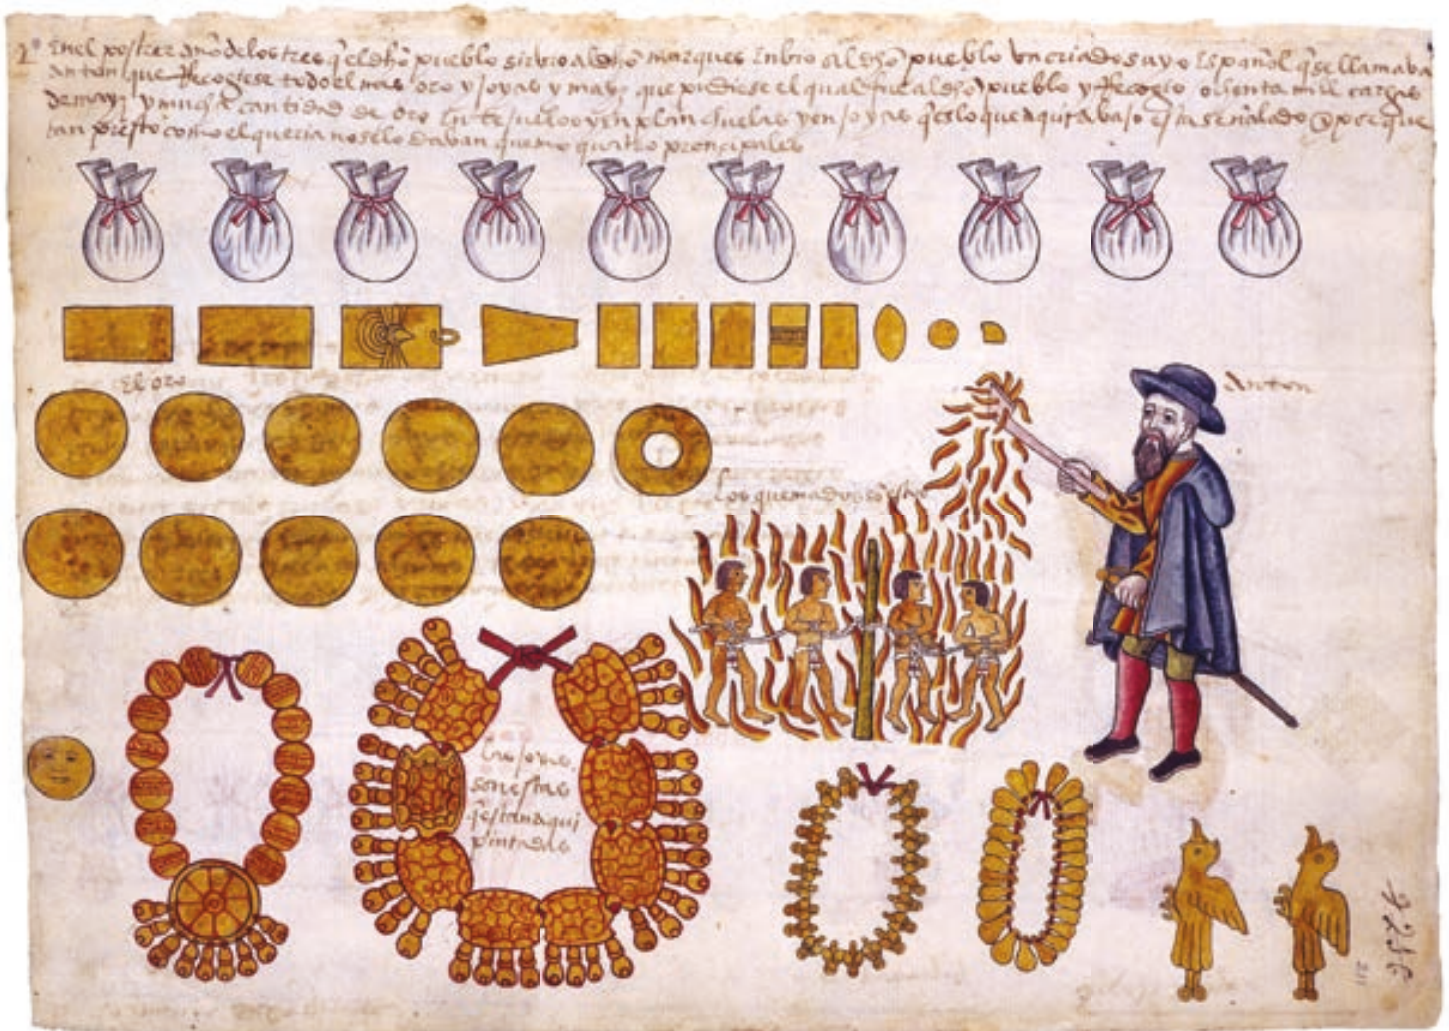 En el postrer año de los tres q̃ el dho pueblo sirvio al dho marques enbio al dho pueblo un criado suyo español q̃ se llamava
anton que Recogiese todo el mas oro y joyas y mayz que pudiese el qual fue al dho pueblo y Recogio ochenta mill cargas
de mayz y mucha cantidad de oro en tejuelos y en planchuelas y en joyas q̃ es lo que aqui abaxo esta señalado y porque
tan presto como el queria no selo daban quemo quatro principales
El oro
Anton
los quemados sō estos
las joyas
son estas
q̃ estan aqui
pintadas